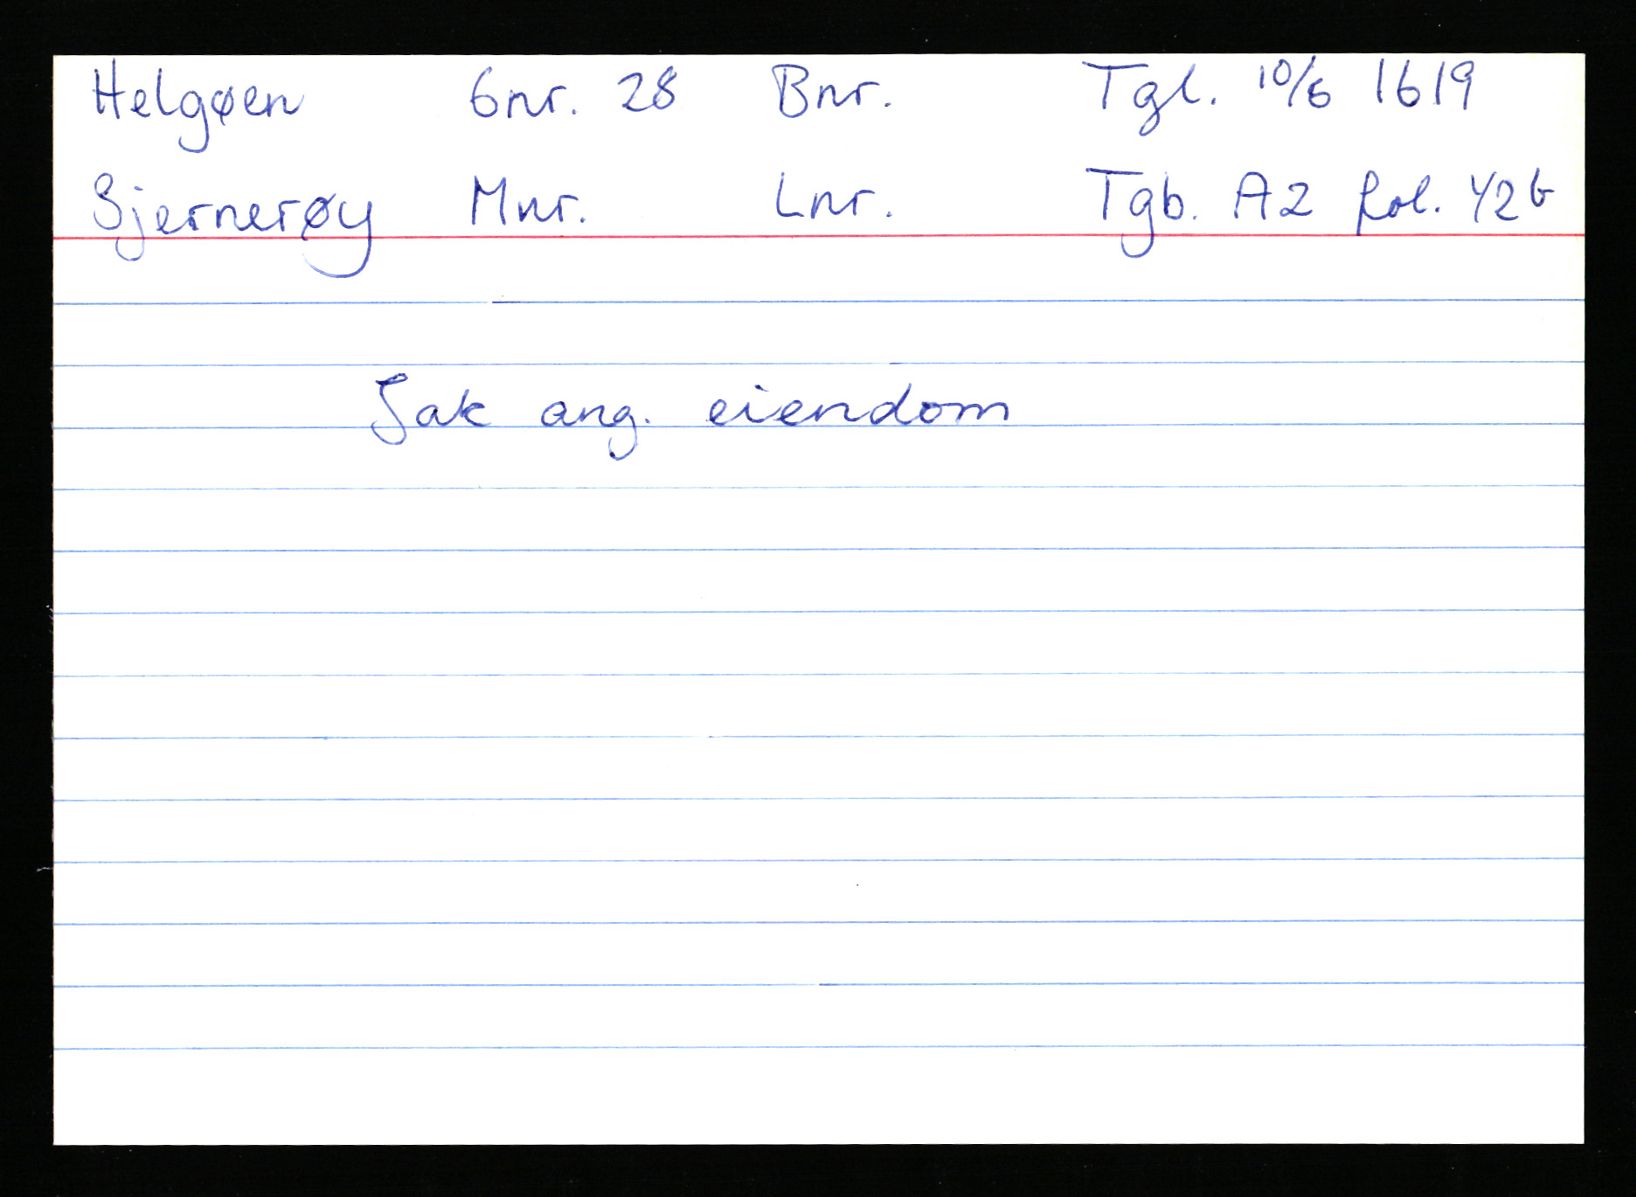 Helgøen Gnr. 28 Bnr. Tgl. 10/6 1619
Sjernerøy Mnr. Lnr. Tgb. A2 fol. 42b
Sak ang. eiendom